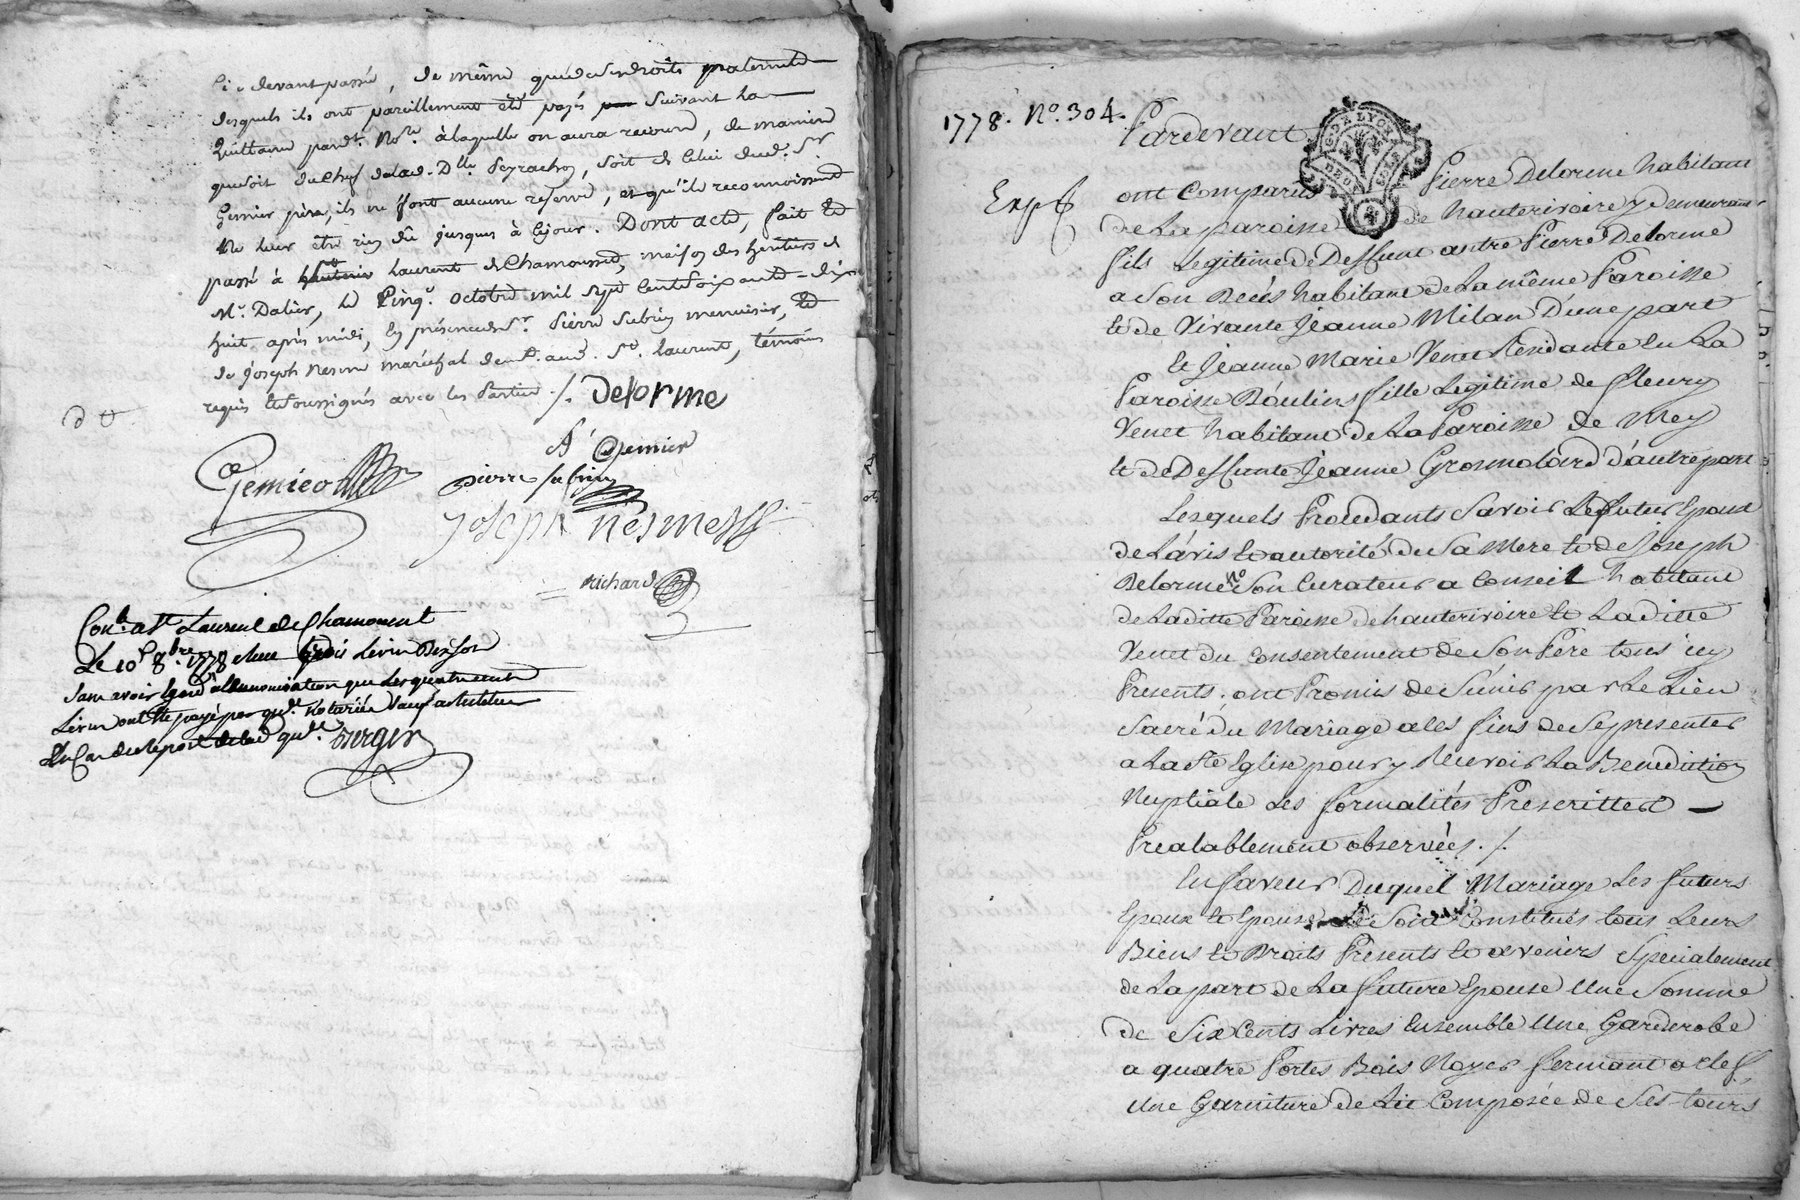 Ci devant passé, de même que des droits paternels
desquels ils ont pareillement été payés suivant la
quittance pardt. Note. à laquelle on aura recours, de maniere
que soit du chef de lad. Dlle Peyrachon, soit de celui dud. Sr.
Gemier père, ils ne font aucune reserve, et qu'ils reconnoissent
ne leur être rien dû jusques à ce jour. Dont acte, fait et
passé à Laurent de Chamousset, maison des heritiers de
Mr. Dalier, le Cinq. octobre mil sept cent soixante-dix
huit après midi, en présence de Sr. Pierre Subrin menuisier, et
de Joseph Nesme maréchal demt. aud. St. Laurent, témoins
requis et soussignés avec les parties ./. Delorme
Gemier
Gemieo pierre subrin
Joseph nesme
richard
Conlé. a St Laurent de Chamousset
Le 10e 8bre. 1778 Livres
Sans avoir Egard a l'enonciation que les quatre cents
Livres ont été payé par qce. Notariée sauf
1778. No. 304. Pardevant
G. DE LYON
DEUX SOLS
Expé
ont Comparus Pierre Delorme habitant
de La paroisse de hauterivoire y demeurant
fils Legitime de Deffunt autre Pierre Delorme
a Son Decés habitant de La même Paroisse
et de Vivante Jeanne Milan D'une part
Et Jeanne Marie Venet Residante En La
Paroisse D'oulins fille Legitime de fleury
Venet habitant de La Paroisse de Mey
et de Deffunte Jeanne Grosmolard d'autre part
Lesquels Procedants Savoir Le futur Epoux
de L'avis et autorité de Sa Mere et de Joseph
Delorme Son Curateur a Conseil habitant
de Laditte Paroisse de hauterivoire et Laditte
Venet du Consentement de Son Pére tous icy
Presents, ont Promis de S'unir par Le Lien
Sacré du Mariage a Les fins de Se presenter
a La Ste Eglise pour y Recevoir La Benediction
Nuptiale Les formalités Prescrittes —
Prealablement observées ./.
En faveur Duquel Mariage Les futurs
Epoux et Epouse Se Sont Constitués tous Leurs
Biens et Droits Présents et avenirs Specialement
de La part de La future Epouse Une Somme
de Six Cents Livres Ensemble Une Garderobe
a quatre Portes Bois Noyer fermant a clef,
Une Garniture de Lit Composée de Ses tours